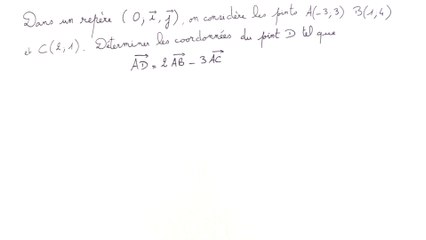 Dans un repère (O, i⃗, j⃗), on considère les points A(-3,3) B(1,4)
et C(2,1). Déterminer les coordonnées du point D tel que
A⃗D⃗ = 2 A⃗B⃗ - 3 A⃗C⃗